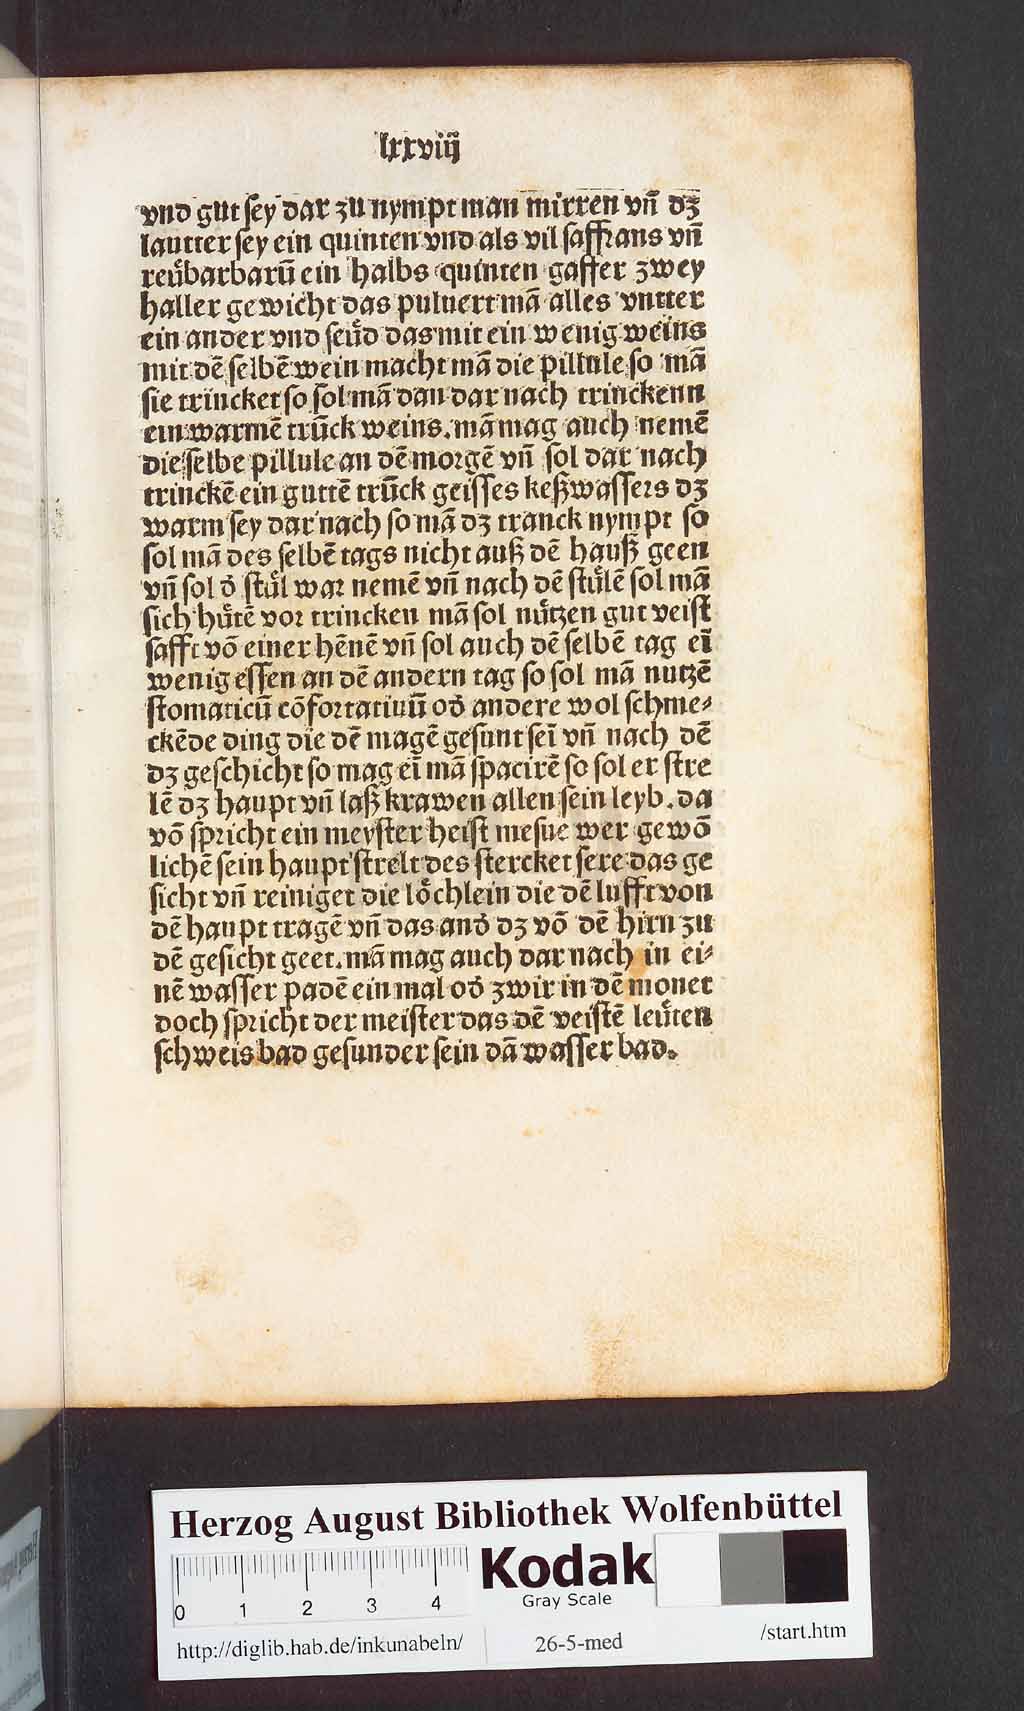 lxxviiij
vnd gut sey dar zu nympt man mirren vn̄ dꝫ
lautter sey ein quinten vnd als vil saffrans vn̄
reuͤbarbarū ein halbs quinten gaffer zwey
haller gewicht das puluert mā alles vntter
ein ander vnd seuͤd das mit ein wenig weins
mit dē selbē wein macht mā die pillule so mā
sie trincket so sol mā dan dar nach trinckenn
ein warmē trūck weins. mā mag auch nemē
die selbe pillule an dē morgē vn̄ sol dar nach
trinckē ein guttē trūck geisses keßwassers dꝫ
warm sey dar nach so mā dꝫ tranck nympt so
sol mā des selbē tags nicht auß dē hauß geen
vn̄ sol d̄ stuͤl war nemē vn̄ nach dē stuͤlē sol mā
sich huͤtē vor trincken mā sol nuͤtzen gut veist
safft vō einer hēnē vn̄ sol auch dē selbē tag eī
wenig essen an dē andern tag so sol mā nutzē
stomaticū cōfortatiuū od̄ andere wol schme⸗
ckēde ding die dē magē gesunt seī vn̄ nach dē
dꝫ geschicht so mag eī mā spacirē so sol er stre
lē dꝫ haupt vn̄ laß krawen allen sein leyb. da
vō spricht ein meyster heist mesue wer gewō
lichē sein haupt strelt des stercket sere das ge
sicht vn̄ reiniget die loͤchlein die dē lufft von
dē haupt tragē vn̄ das and̄ dꝫ vō dē hirn zu
dē gesicht geet. mā mag auch dar nach in ei⸗
nē wasser padē ein mal od̄ zwir in dē monet
doch spricht der meister das dē veistē leuͤten
schweis bad gesunder sein dā wasser bad.
Herzog August Bibliothek Wolfenbüttel
0 1 2 3 4
Kodak
Gray Scale
http://diglib.hab.de/inkunabeln/
26-5-med
/start.htm